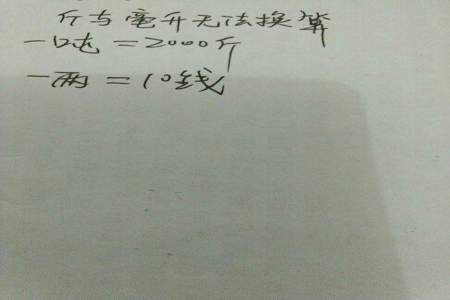 斤与毫升无法换算
一吨=2000斤
一两=10钱